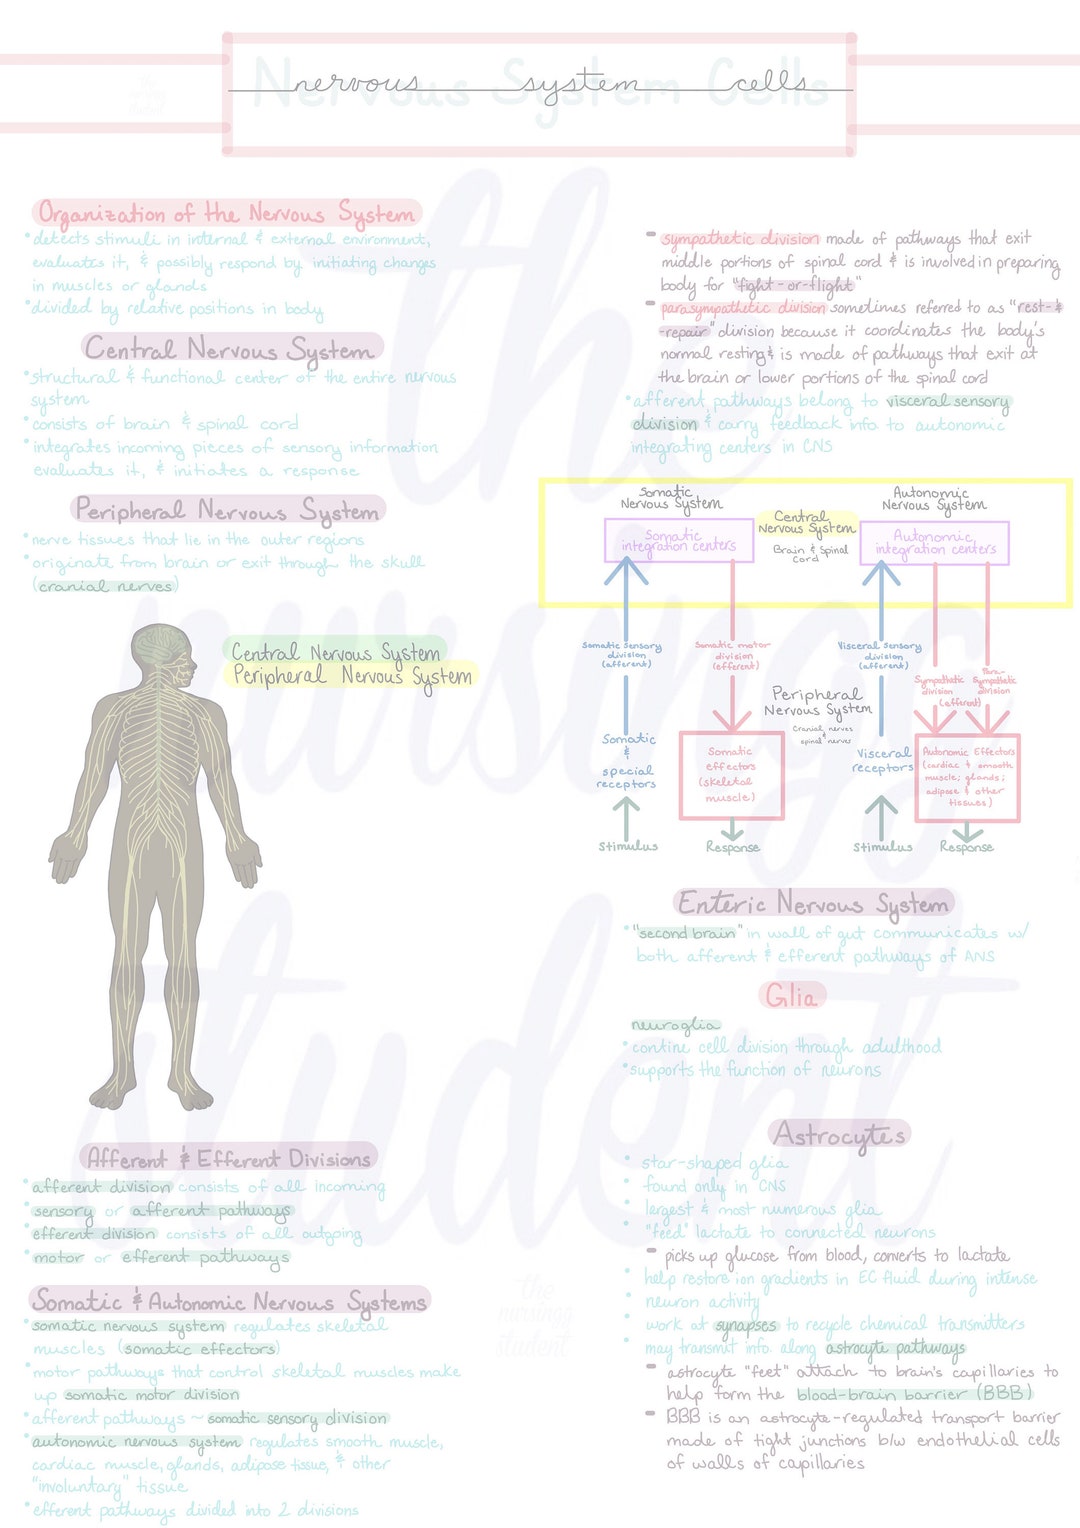 Nervous System Cells
nervous system cells
the
nursing
student
Organization of the Nervous System
•detects stimuli in internal & external environment,
evaluates it, & possibly respond by initiating changes
in muscles or glands
•divided by relative positions in body
Central Nervous System
•structural & functional center of the entire nervous
system
•consists of brain & spinal cord
•integrates incoming pieces of sensory information
evaluates it, & initiates a response
Peripheral Nervous System
•nerve tissues that lie in the outer regions
•originate from brain or exit through the skull
(cranial nerves)
Central Nervous System
Peripheral Nervous System
Afferent & Efferent Divisions
•afferent division consists of all incoming
sensory or afferent pathways
•efferent division consists of all outgoing
motor or efferent pathways
Somatic & Autonomic Nervous Systems
•somatic nervous system regulates skeletal
muscles (somatic effectors)
•motor pathways that control skeletal muscles make
up somatic motor division
•afferent pathways ~ somatic sensory division
•autonomic nervous system regulates smooth muscle,
cardiac muscle, glands, adipose tissue, & other
"involuntary" tissue
•efferent pathways divided into 2 divisions
- sympathetic division made of pathways that exit
middle portions of spinal cord & is involved in preparing
body for "fight-or-flight"
- parasympathetic division sometimes referred to as "rest-&
-repair" division because it coordinates the body's
normal resting & is made of pathways that exit at
the brain or lower portions of the spinal cord
•afferent pathways belong to visceral sensory
division & carry feedback info to autonomic
integrating centers in CNS
Somatic
Nervous System
Autonomic
Nervous System
Somatic
integration centers
Central
Nervous System
Brain & Spinal
Cord
Autonomic
integration centers
Somatic Sensory
division
(afferent)
Somatic motor
division
(efferent)
Visceral Sensory
division
(afferent)
Sympathetic
division
Para-
Sympathetic
division
(efferent)
Peripheral
Nervous System
Cranial nerves
&
spinal nerves
Somatic
&
special
receptors
Somatic
effectors
(skeletal
muscle)
Visceral
receptors
Autonomic Effectors
(cardiac & smooth
muscle; glands;
adipose & other
tissues)
Stimulus
Response
Stimulus
Response
Enteric Nervous System
•"second brain" in wall of gut communicates w/
both afferent & efferent pathways of ANS
Glia
neuroglia
•contine cell division through adulthood
•supports the function of neurons
Astrocytes
• star-shaped glia
• found only in CNS
• largest & most numerous glia
• "feed" lactate to connected neurons
- picks up glucose from blood, converts to lactate
• help restore ion gradients in EC fluid during intense
• neuron activity
• work at synapses to recycle chemical transmitters
• may transmit info. along astrocyte pathways
- astrocyte "feet" attach to brain's capillaries to
help form the blood-brain barrier (BBB)
- BBB is an astrocyte-regulated transport barrier
made of tight junctions b/w endothelial cells
of walls of capillaries
the
nursingg
student
the
nursingg
student